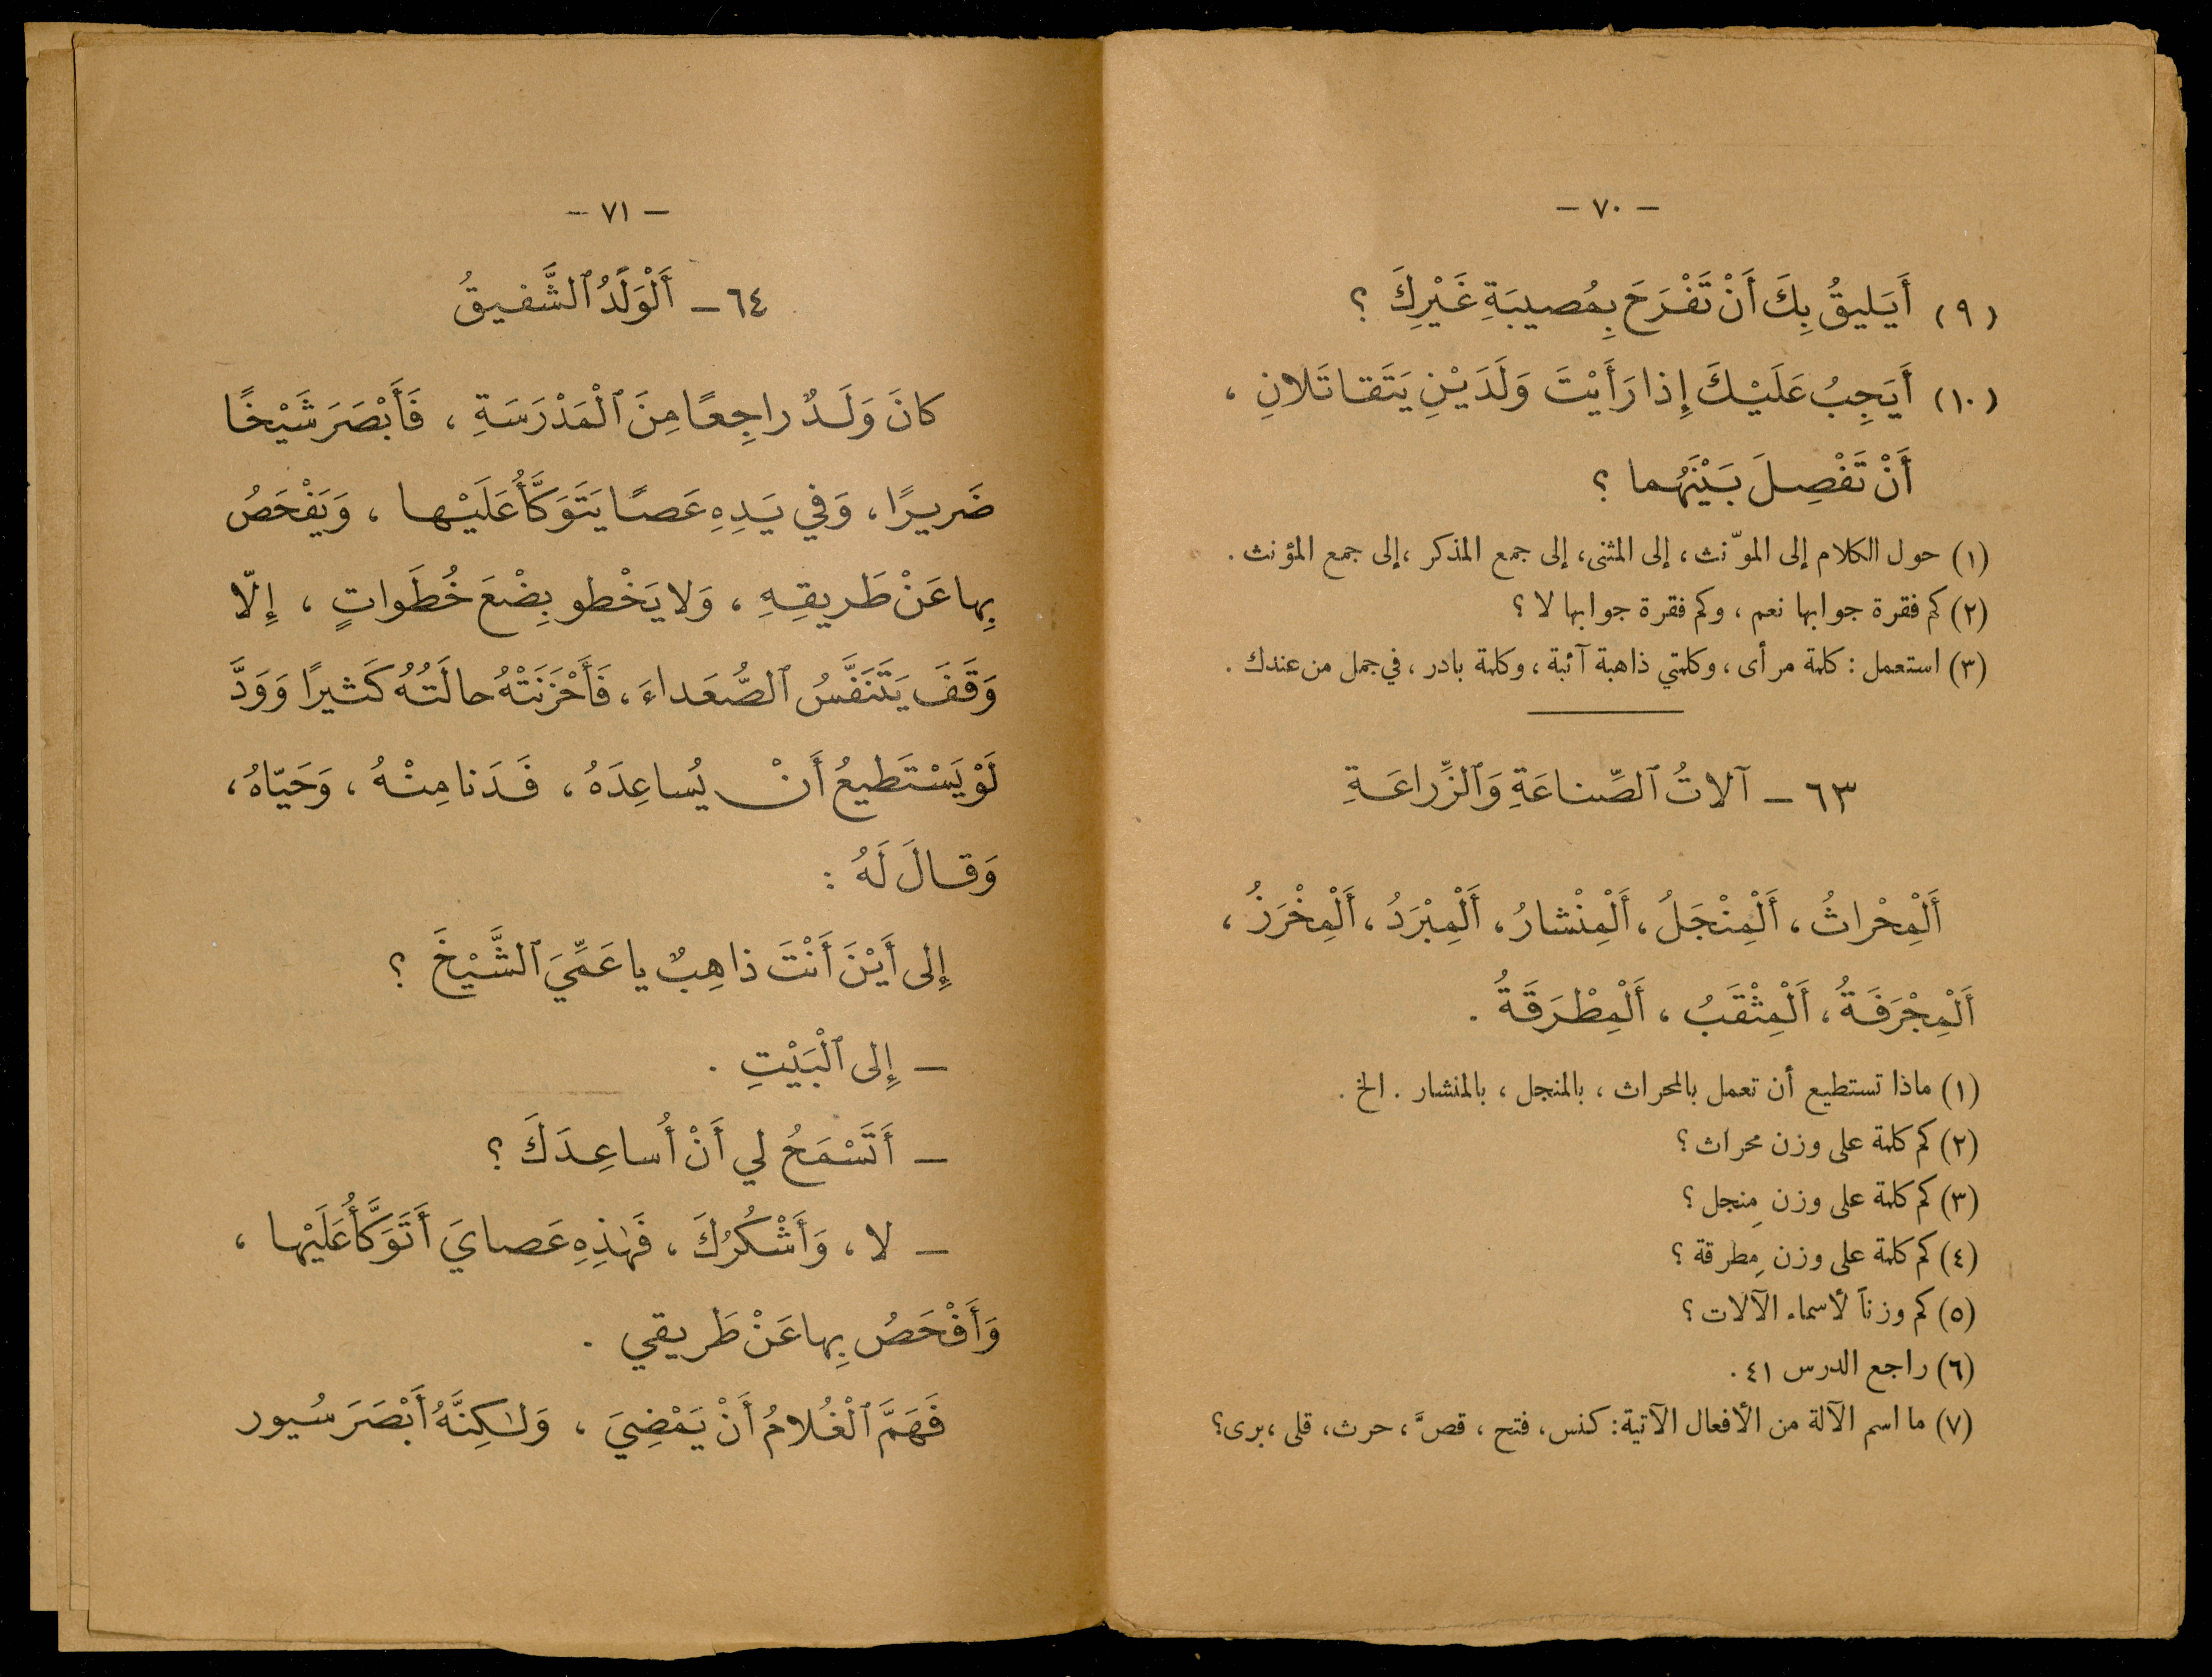 — ٧٠ —
(٩) أَيَليقُ بِكَ أَنْ تَفْرَحَ بِمُصيبَةِ غَيْرِكَ ؟
(١٠) أَيَجِبُ عَلَيْكَ إِذا رَأَيْتَ وَلَدَيْنِ يَتَقاتَلانِ ،
أَنْ تَفْصِلَ بَيْنَهُما ؟
(١) حول الكلام إلى الموّنث ، إلى المثنى ، إلى جمع المذكر ، إلى جمع المؤنث .
(٢) كم فقرة جوابها نعم ، وكم فقرة جوابها لا ؟
(٣) استعمل : كلمة مرأى ، وكلمتي ذاهبة آئبة ، وكلمة بادر ، في جمل من عندك .
٦٣ — آلاتُ ٱلصِّناعَةِ وَٱلزِّراعَةِ
أَلْمِحْراثُ ، أَلْمِنْجَلُ ، أَلْمِنْشارُ ، أَلْمِبْرَدُ ، أَلْمِخْرَزُ ،
أَلْمِجْرَفَةُ ، أَلْمِثْقَبُ ، أَلْمِطْرَقَةُ .
(١) ماذا تستطيع أن تعمل بالمحراث ، بالمنجل ، بالمنشار . الخ .
(٢) كم كلمة على وزن محراث ؟
(٣) كم كلمة على وزن مِنجل ؟
(٤) كم كلمة على وزن مِطرقة ؟
(٥) كم وزناً لأسماء الآلات ؟
(٦) راجع الدرس ٤١ .
(٧) ما اسم الآلة من الأفعال الآتية : كنس ، فتح ، قصَّ ، حرث ، قلى ، برى ؟
— ٧١ —
٦٤ — أَلْوَلَدُ ٱلشَّفيقُ
كانَ وَلَدٌ راجِعًا مِنَ ٱلْمَدْرَسَةِ ، فَأَبْصَرَ شَيْخًا
ضَريرًا ، وَفي يَدِهِ عَصًا يَتَوَكَّأُ عَلَيْها ، وَيَفْحَصُ
بِها عَنْ طَريقِهِ ، وَلا يَخْطو بِضْعَ خُطَواتٍ ، إِلّا
وَقَفَ يَتَنَفَّسُ ٱلصُّعَداءَ ، فَأَحْزَنَتْهُ حالَتُهُ كَثيرًا وَوَدَّ
لَوْ يَسْتَطيعُ أَنْ يُساعِدَهُ ، فَدَنا مِنْهُ ، وَحَيّاهُ ،
وَقالَ لَهُ :
إِلى أَيْنَ أَنْتَ ذاهِبٌ يا عَمِّيَ ٱلشَّيْخَ ؟
— إِلى ٱلْبَيْتِ .
— أَتَسْمَحُ لي أَنْ أُساعِدَكَ ؟
— لا ، وَأَشْكُرُكَ ، فَهٰذِهِ عَصايَ أَتَوَكَّأُ عَلَيْها ،
وَأَفْحَصُ بِها عَنْ طَريقي .
فَهَمَّ ٱلْغُلامُ أَنْ يَمْضِيَ ، وَلٰكِنَّهُ أَبْصَرَ سُيور